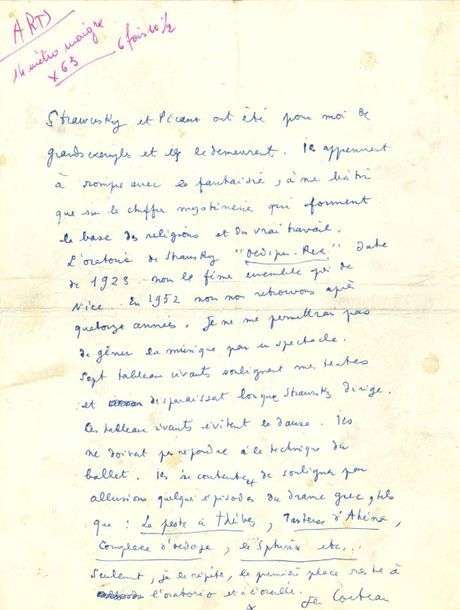 ARTS
14 métro maigre
x 63
6 fois 10 1/2
Strawinsky et Picasso ont été pour moi de
grands exemples et ils le demeurent. Ils apprennent
à rompre avec la fantaisie, à ne bâtir
que sur le chiffre mystérieux qui forment
la base des religions et du vrai travail.
L'oratorio de Strawinsky "Oedipus-Rex" date
de 1923 nous le fîmes ensemble près de
Nice. En 1952 nous nous retrouvons après
quatorze années. Je ne me permettrai pas
de gêner la musique par un spectacle.
Sept tableaux vivants soulignent mes textes
et disparaissent lorsque Strawinsky dirige.
Ces tableaux vivants évitent la danse. Ils
ne doivent pas répondre à la technique du
ballet. Ils se contentent de souligner par
allusions quelques épisodes du drame grec, tels
que : La peste à Thèbes, d'Athéna,
Complexe d'Oedipe, le Sphinx etc...
Seulement, je le répète, la première place reste à
l'oratorio et à l'oreille.
Jean Cocteau